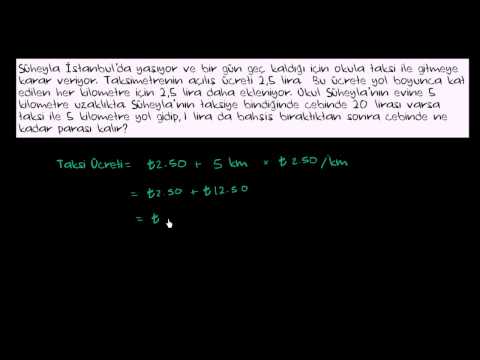 Süheyla İstanbul'da yaşıyor ve bir gün geç kaldığı için okula taksi ile gitmeye
karar veriyor. Taksimetrenin açılış ücreti 2,5 lira. Bu ücrete yol boyunca kat
edilen her kilometre için 2,5 lira daha ekleniyor. Okul Süheyla'nın evine 5
kilometre uzaklıkta Süheyla'nın taksiye bindiğinde cebinde 20 lirası varsa
taksi ile 5 kilometre yol gidip, 1 lira da bahşiş bıraktıktan sonra cebinde ne
kadar parası kalır?
Taksi Ücreti = ₺2.50 + 5 km × ₺2.50/km
= ₺2.50 + ₺12.50
= ₺